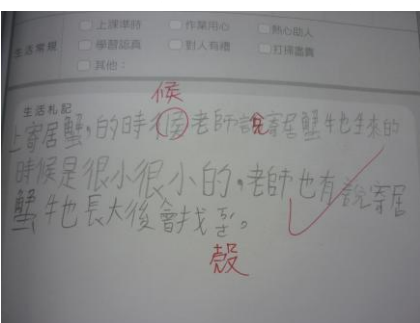 上課準時 作業用心 熱心助人
生活常規 學習認真 對人有禮 打掃盡責
其他：
生活札記
候
上寄居蟹,的時侯老師說寄居蟹牠生來的
時候是很小很小的,老師也有說寄居
蟹牠長大後會找ㄎㄜˊ。
殼